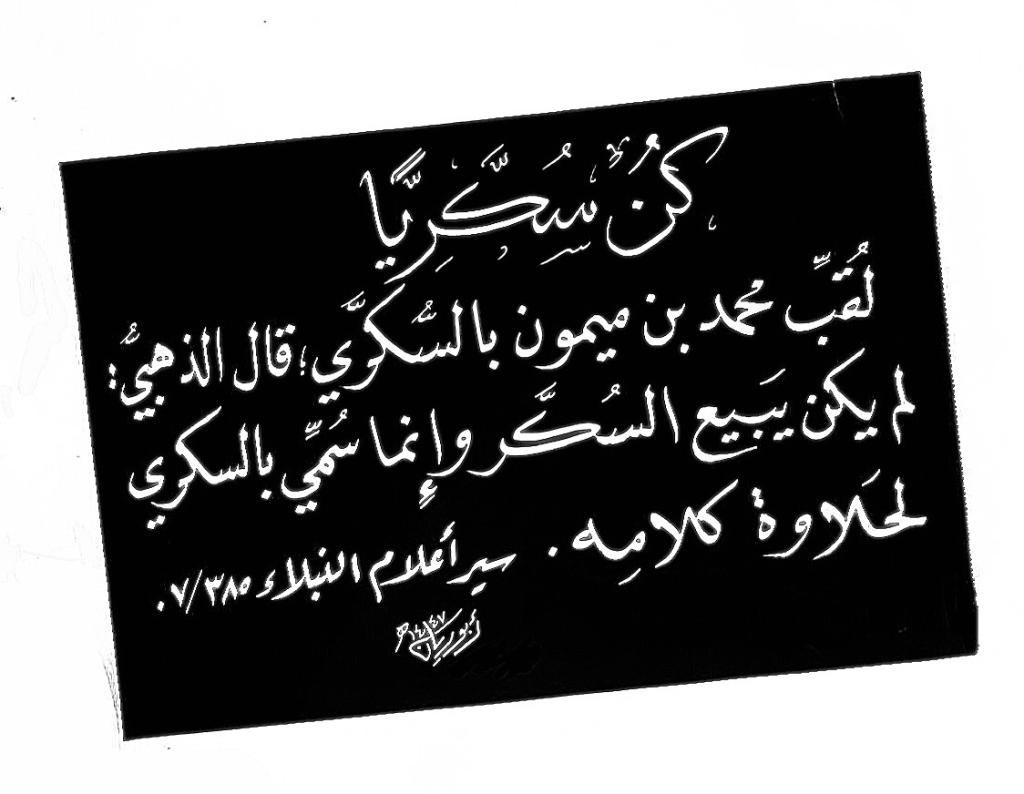 كُنْ سُكَّرِيًّا
لُقِّبَ محمد بن ميمون بالسُّكَّري؛ قال الذهبيُّ:
لم يكن يَبيع السُكَّر وإِنما سُمِّي بالسكري
لحَلاوة كلامِه . سير أعلام النبلاء ٧/٣٨٥.
١٤٤٧هـ